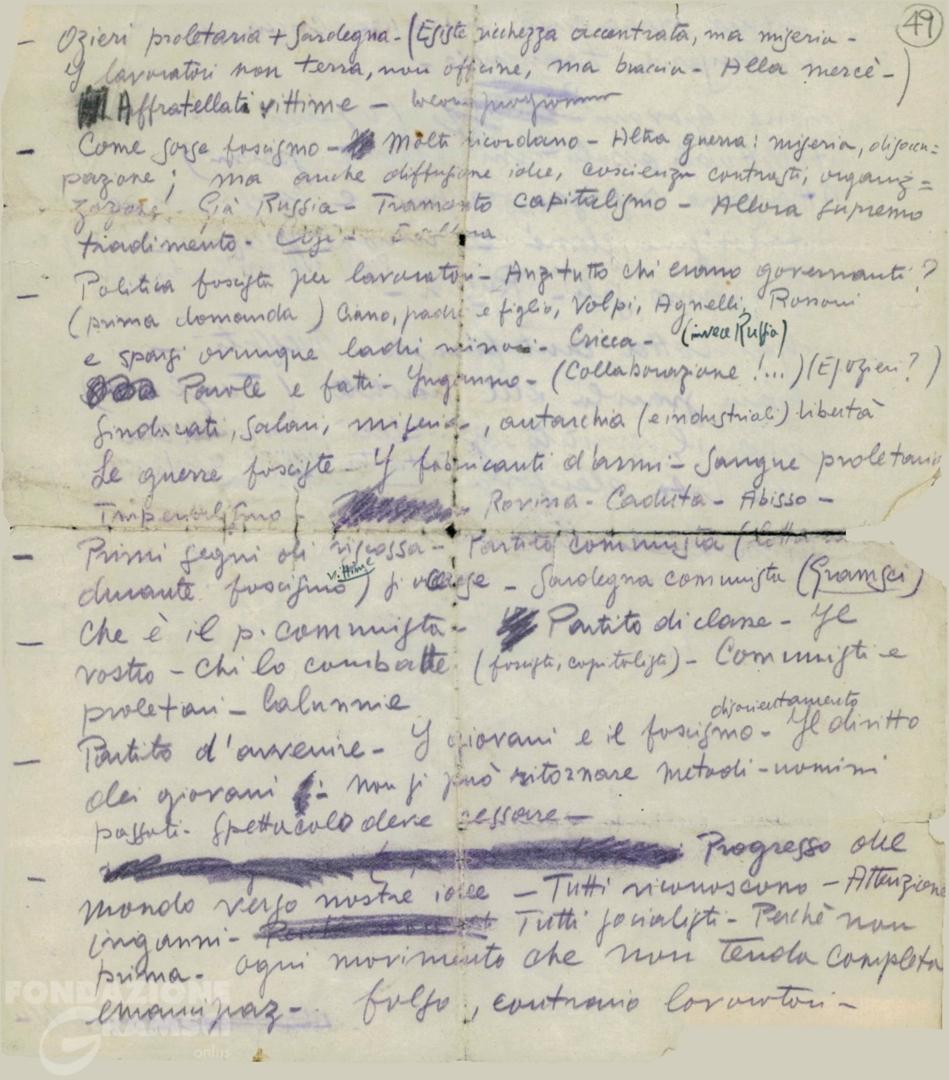 49
- Ozieri proletaria + Sardegna - (Esiste ricchezza accentrata, ma miseria -
I lavoratori non terra, non officine, ma braccia - Alla mercè - )
Affratellati vittime -
- Come sorse fascismo - Molti ricordano - Altra guerra: miseria, disoccu=
pazione; ma anche diffusione idee, coscienza contrasti, organiz=
zazione. Già Russia - Tramonto capitalismo - Allora supremo
tradimento -
- Politica fascista per lavoratori - Anzitutto chi erano governanti?
(prima domanda) Ciano, padre e figlio, Volpi, Agnelli, Rossoni
e sparsi ovunque ladri minori - Cricca - (invece Russia)
Parole e fatti - Inganno - (Collaborazione!...) (Es Ozieri?)
Sindacati, salari, miseria -, autarchia (e industriali) libertà
Le guerre fasciste - I fabbricanti d'armi - Sangue proletario
Imperialismo - Rovina - Caduta - Abisso -
- Primi segni di riscossa - Partito comunista (lotta
durante fascismo) vittime si - Sardegna comunista (Gramsci)
- Che è il p. comunista - Partito di classe - Il
vostro - Chi lo combatte (fascisti, capitalisti) - Comunisti e
proletari - Calunnie
- Partito d'avvenire - I giovani e il fascismo - disorientamento Il diritto
dei giovani : non si può ritornare metodi - uomini
passati - Spettacolo deve cessare -
- Progresso del
mondo verso nostre idee - Tutti riconoscono - Attenzione
inganni - Tutti socialisti - Perchè non
prima - Ogni movimento che non tenda completa
emancipaz - falso, contrario lavoratori -
FONDAZIONE
GRAMSCI
onlus